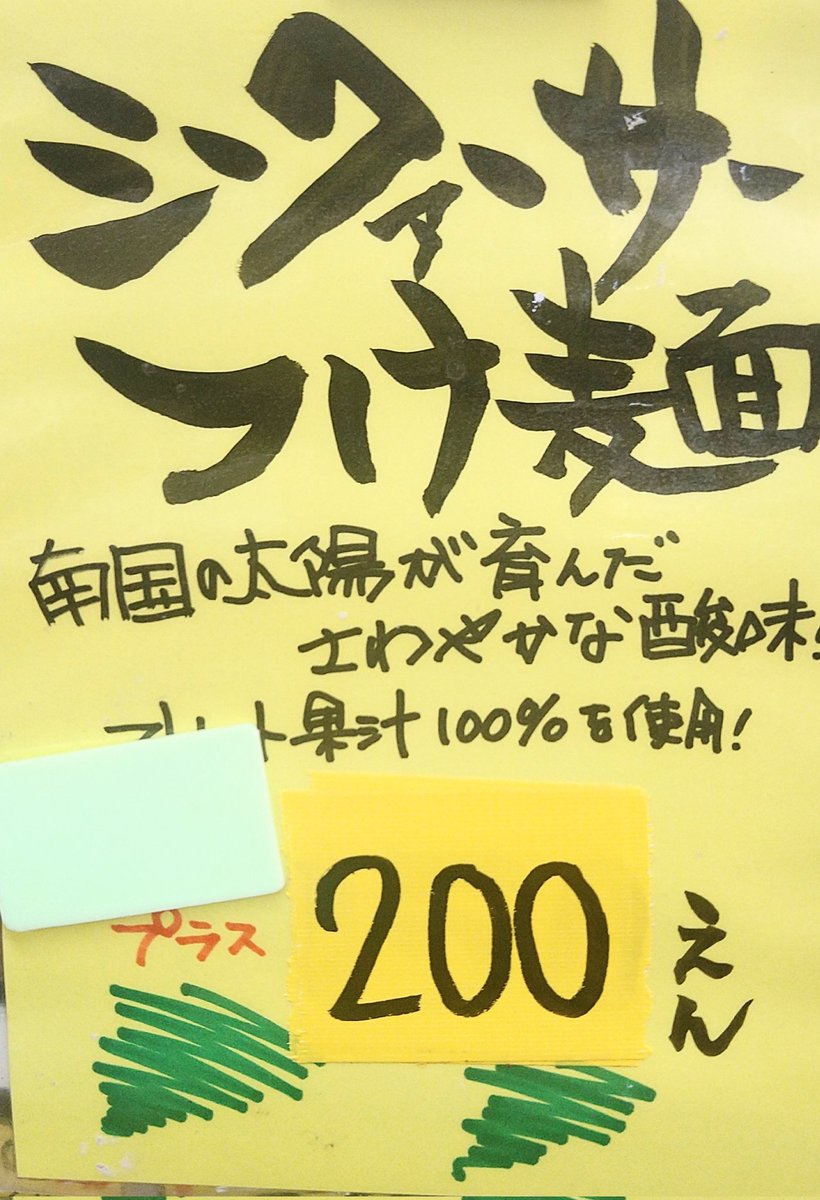 シークァーサー
つけ麺
南国の太陽が育んだ
さわやかな酸味!
果汁100%を使用!
プラス 200 えん